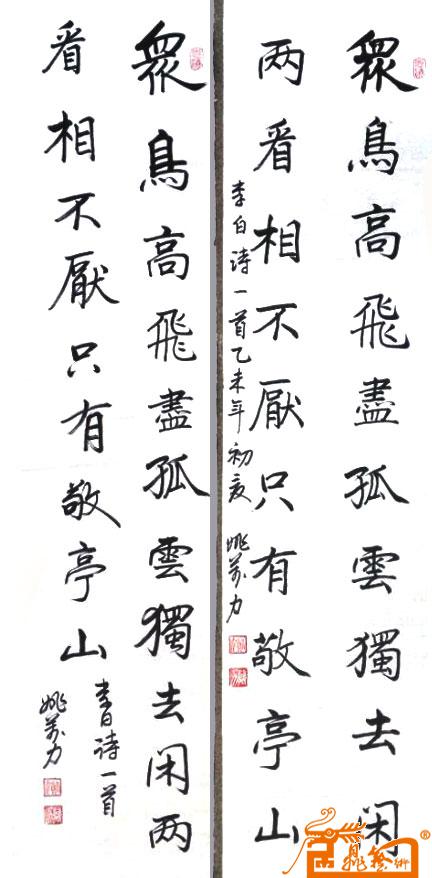 眾鳥高飛盡孤雲獨去闲
两看相不厭只有敬亭山
李白诗一首乙未年初夏 姚萬力
眾鳥高飛盡孤雲獨去闲两
看相不厭只有敬亭山
李白诗一首
姚萬力